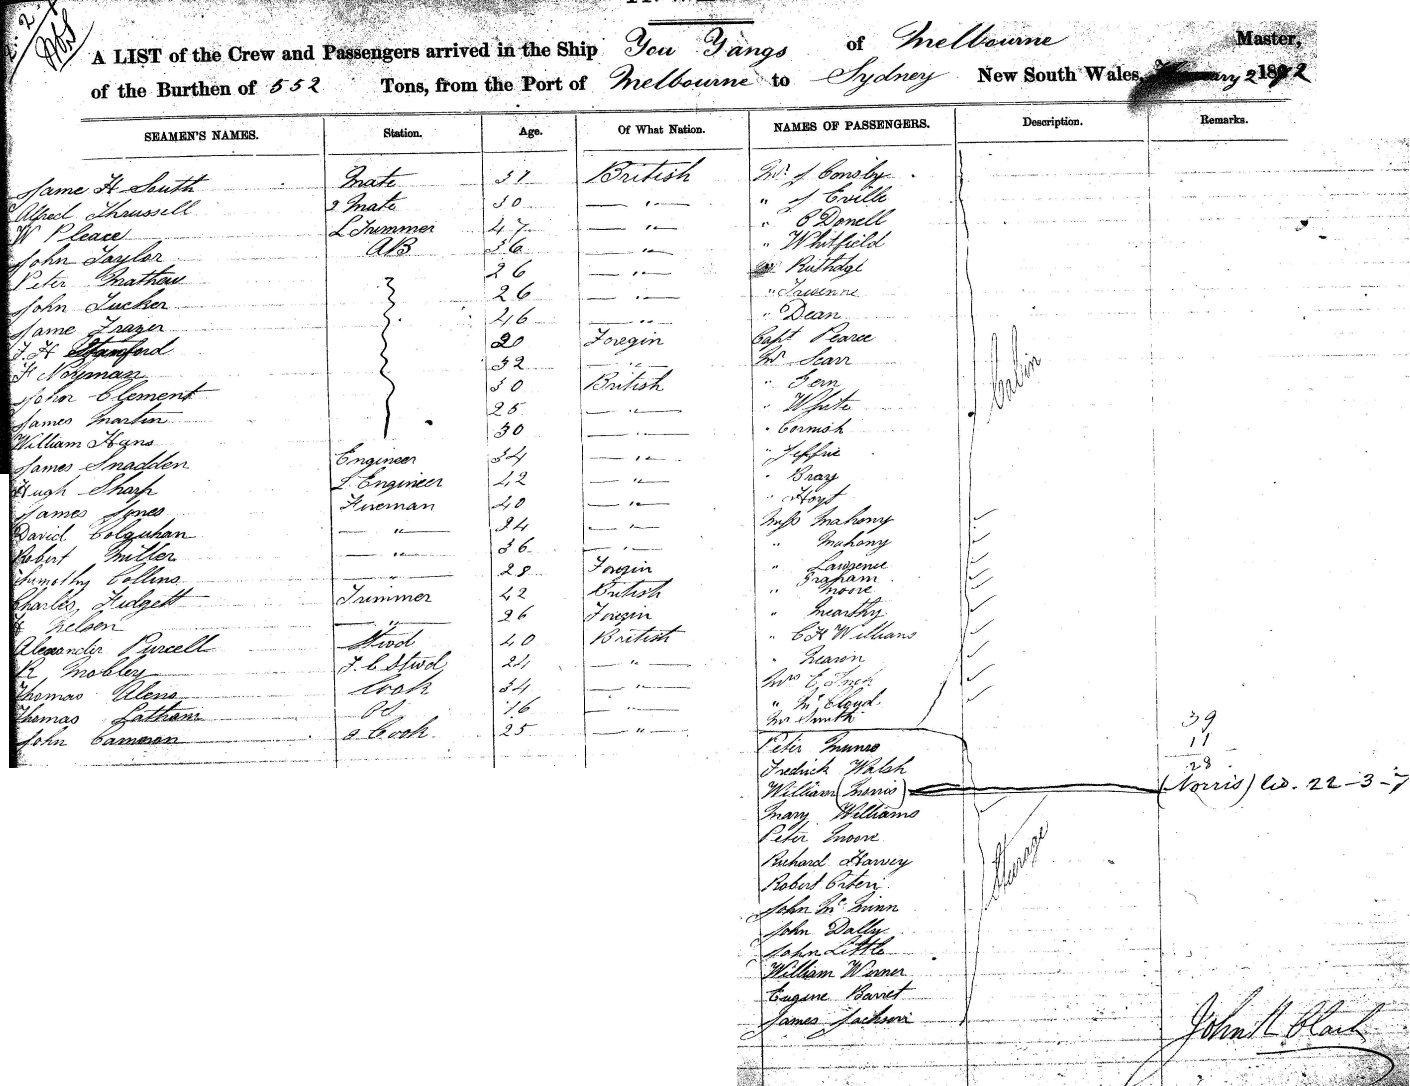 A LIST of the Crew and Passengers arrived in the Ship You Yangs of Melbourne Master,
of the Burthen of 552 Tons, from the Port of Melbourne to Sydney New South Wales, 2 1872
SEAMEN'S NAMES. Station. Age. Of What Nation. NAMES OF PASSENGERS. Description. Remarks.
Jame H South Mate 37 British Mr J Consby
Alfred Thrussell 2 Mate 30 " " J Eville
W Pleace L Trimmer 47 " " P Donell
John Taylor AB 36 " " Whitfield
Peter Mathew 26 " Ruthdge
John Tucker 26 " "
Jame Frazer 46 " " Dean
J. H Stamford 20 Foregin Capt Pearce
H Noyman 32 " Mr Scarr
John Clement 30 British " Fern
James Martin 25 " " White
William Hans 30 " " Cornish
James Snadden Engineer 34 " " Jeffrie
Hugh Sharp 2 Engineer 42 " " Bray
James Jones Fireman 40 " " Hoyt
David Colquhan " 24 " Miss Mahony
Robert Miller " 36 " " Mahony
Timothy Collins " 28 Foregin " Lawrence
Graham
Charles Fidgett Trimmer 42 British " Moore
H Nelson " 26 Foregin " Mearthy
Alexander Purcell Stwd 40 British " C H Williams
R Mobley F. C. Stwd 24 " "
Thomas Alens Cook 34 " Mrs E
Thomas Latham OS 16 " " McCloyd
John Cameron 2 Cook 25 " Mr Smith
Cabin
39
11
28
Peter Munro
Fredrick Walsh
William (Morris) (Norris) 22-3-7
Mary Williams
Peter Moore
Richard Harvey
Robert
John Mc Minn
John Dally
John Little
William Werner
Eugene Barret
James Jackson
Sturage
John H Clark